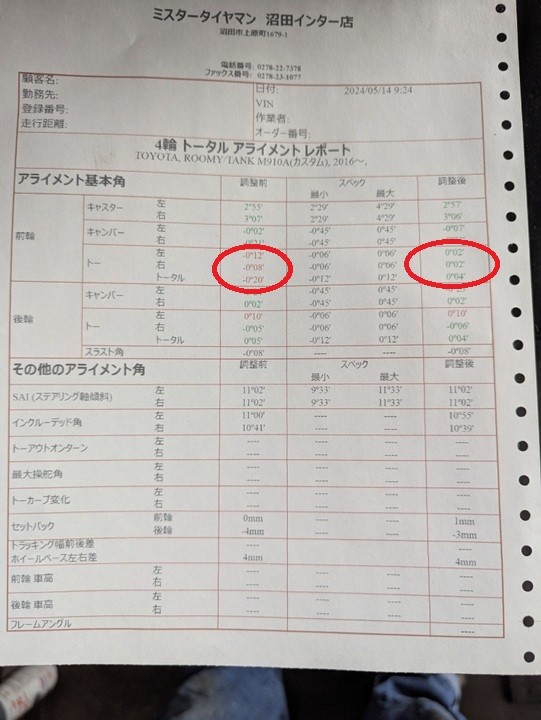 ミスタータイヤマン 沼田インター店
沼田市上原町1679-1
電話番号: 0278-22-7378
ファックス番号: 0278-23-1077
顧客名:
勤務先:
登録番号:
走行距離:
日付: 2024/05/14 9:24
VIN
作業者:
オーダー番号:
4輪 トータル アライメント レポート
TOYOTA, ROOMY/TANK M910A(カスタム), 2016〜,
アライメント基本角 調整前 スペック 調整後
最小 最大
前輪
キャスター 左 2°55' 2°29' 4°29' 2°57'
右 3°07' 2°29' 4°29' 3°06'
キャンバー 左 -0°02' -0°45' 0°45' -0°07'
右 -0°45' 0°45'
トー 左 -0°12' -0°06' 0°06' 0°02'
右 -0°08' -0°06' 0°06' 0°02'
トータル -0°20' -0°12' 0°12' 0°04'
後輪
キャンバー 左 -0°45' 0°45'
右 0°02' -0°45' 0°45' 0°02'
トー 左 0°10' -0°06' 0°06' 0°10'
右 -0°05' -0°06' 0°06' -0°06'
トータル 0°05' -0°12' 0°12' 0°04'
スラスト角 -0°08' ---- ---- -0°08'
その他のアライメント角 調整前 スペック 調整後
最小 最大
SAI (ステアリング軸傾斜) 左 11°02' 9°33' 11°33' 11°02'
右 11°02' 9°33' 11°33' 11°02'
インクルーデッド角 左 11°00' ---- ---- 10°55'
右 10°41' ---- ---- 10°39'
トーアウトオンターン 左 ---- ---- ---- ----
右 ---- ---- ---- ----
最大操舵角 左 ---- ---- ---- ----
右 ---- ---- ---- ----
トーカーブ変化 左 ---- ---- ---- ----
右 ---- ---- ---- ----
セットバック 前輪 0mm ---- ---- 1mm
後輪 -4mm ---- ---- -3mm
トラッキング幅前後差 ---- ----
ホイールベース左右差 4mm 4mm
前輪 車高 左 ---- ---- ---- ----
右 ---- ---- ---- ----
後輪 車高 左 ---- ---- ---- ----
右 ---- ---- ---- ----
フレームアングル ----